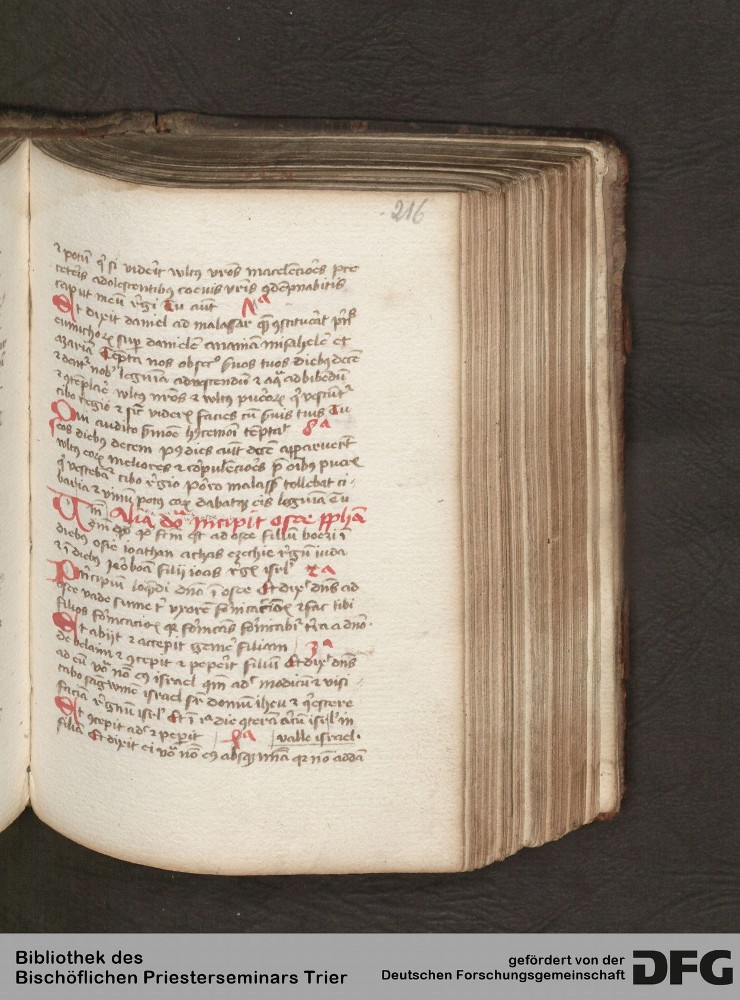 216
& potū qͥ si viderit vultus vr̄os macelēciores pre
ceteris adolescentibus coevis vr̄is ꝯdēpnabitis
caput meū regi Tu aūt
Et dixit daniel ad malasar quē ꝯstituerat pͥnceps
eunuchoꝝ super danielē ananiā misahelē et
azariā Tēpta nos obsecro ẜuos tuos diebus decē
& dent nob legumīa ad vescendū & aqua ad bibendū
& ꝯtēplare vultus nr̄os & vultus pueroꝝ qui vescunt
cibo regio & sicut videris facies cū ẜuis tuis Tu
Qui audito ẜmone huiuscemodi tēptavit 8a
eos diebus decem post dies aūt decē apparuerūt
vultus eoꝝ meliores & corpulēciores pre oībus pueris
qui vescebāt cibo regio Porro malasar tollebat ci-
baria & vinū potus eoꝝ dabatque eis legumīa Tu
Alia dn̄ica Incipit osee ꝓpheta
Verbū dn̄i quod factum est ad osee filiū beeri ī
diebus osie ioathan achas ezechie regū iuda
& ī diebus ieroboā filii ioas regis isrl 2a
Principiū loquēdi dn̄o ī osee Et dixit dn̄s ad
osee vade sume tibi uxorē fornicacionū & fac tibi
filios fornicacionū quia fornicās fornicabit terra a dn̄o.
Et abijt & accepit gomer filiam 3a
de belaim & ꝯcepit & peperit filiū Et dixit dn̄s
ad eū voca nomen eius israel quoniam adhuc modicū & visi
tabo sanguinē israel super domū iheu & quiescere
faciā regnū isrl Et ī illa die ꝯterā arcū isrl in
Et ꝯcepit adhuc & peperit valle israel.
filiā Et dixit ei voca nomen eius absque mīa quia non addā
Bibliothek des
Bischöflichen Priesterseminars Trier
gefördert von der
Deutschen Forschungsgemeinschaft
DFG